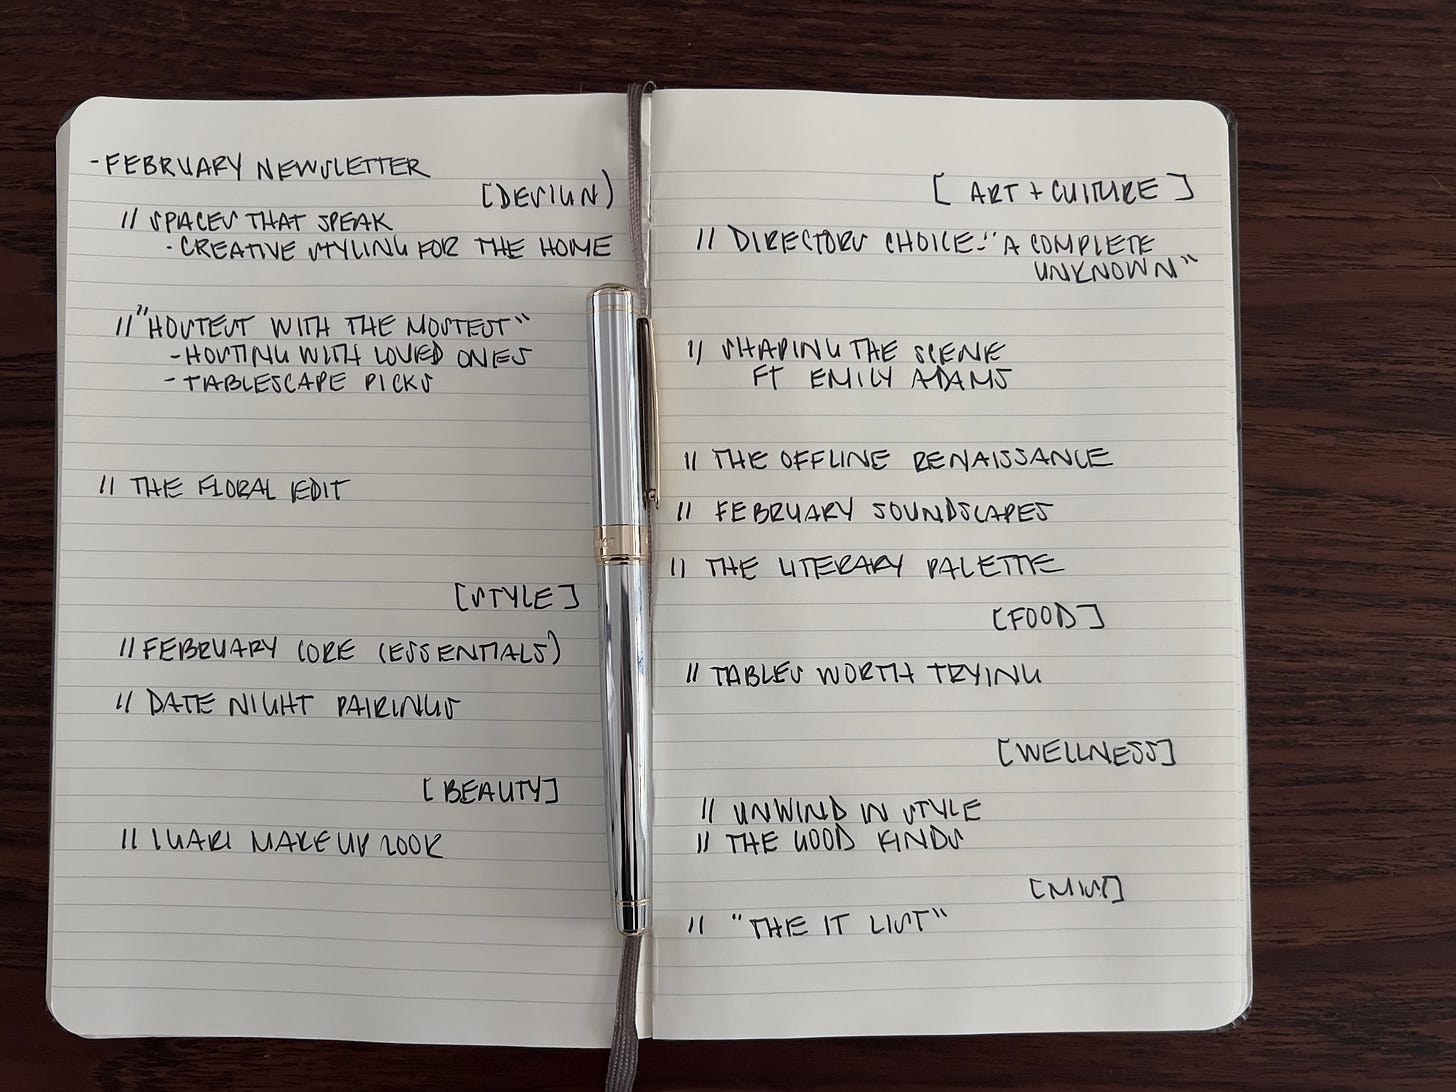 - FEBRUARY NEWSLETTER
[DESIGN)
// SPACES THAT SPEAK
- CREATIVE STYLING FOR THE HOME
// "HOSTEST WITH THE MOSTEST"
- HOSTING WITH LOVED ONES
- TABLESCAPE PICKS
// THE FLORAL EDIT
[STYLE]
// FEBRUARY CORE (ESSENTIALS)
// DATE NIGHT PAIRINGS
[BEAUTY]
// MAKEUP LOOK
[ART + CULTURE]
// DIRECTORS CHOICE: "A COMPLETE
UNKNOWN"
// SHAPING THE SCENE
FT EMILY ADAMS
// THE OFFLINE RENAISSANCE
// FEBRUARY SOUNDSCAPES
// THE LITERARY PALETTE
[FOOD]
// TABLES WORTH TRYING
[WELLNESS]
// UNWIND IN STYLE
// THE GOOD FINDS
[MISC]
// "THE IT LIST"